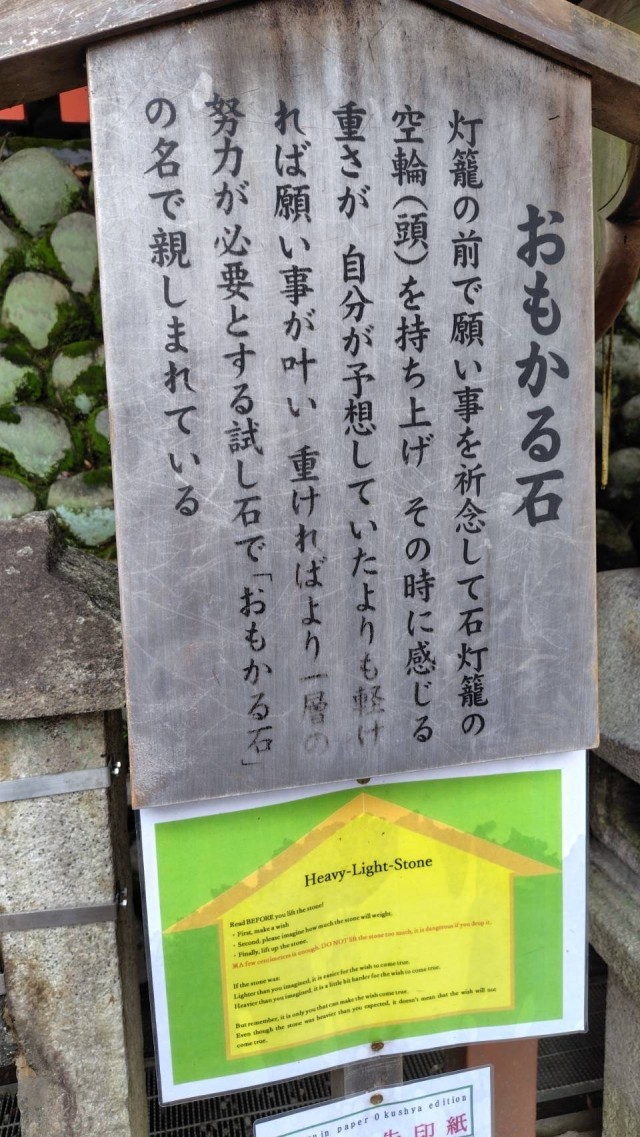 おもかる石
灯籠の前で願い事を祈念して石灯籠の
空輪(頭)を持ち上げ その時に感じる
重さが 自分が予想していたよりも軽け
れば願い事が叶い 重ければより一層の
努力が必要とする試し石で「おもかる石」
の名で親しまれている
Heavy-Light-Stone
Read BEFORE you lift the stone!
・First, make a wish
・Second, please imagine how much the stone will weight.
・Finally, lift up the stone.
※A few centimeters is enough. DO NOT lift the stone too much, it is dangerous if you drop it.
If the stone was:
Lighter than you imagined, it is easier for the wish to come true.
Heavier than you imagined, it is a little bit harder for the wish to come true.
But remember, it is only you that can make the wish come true.
Even though the stone was heavier than you expected, it doesn't mean that the wish will not
come true.
in paper Okushya edition
朱印紙